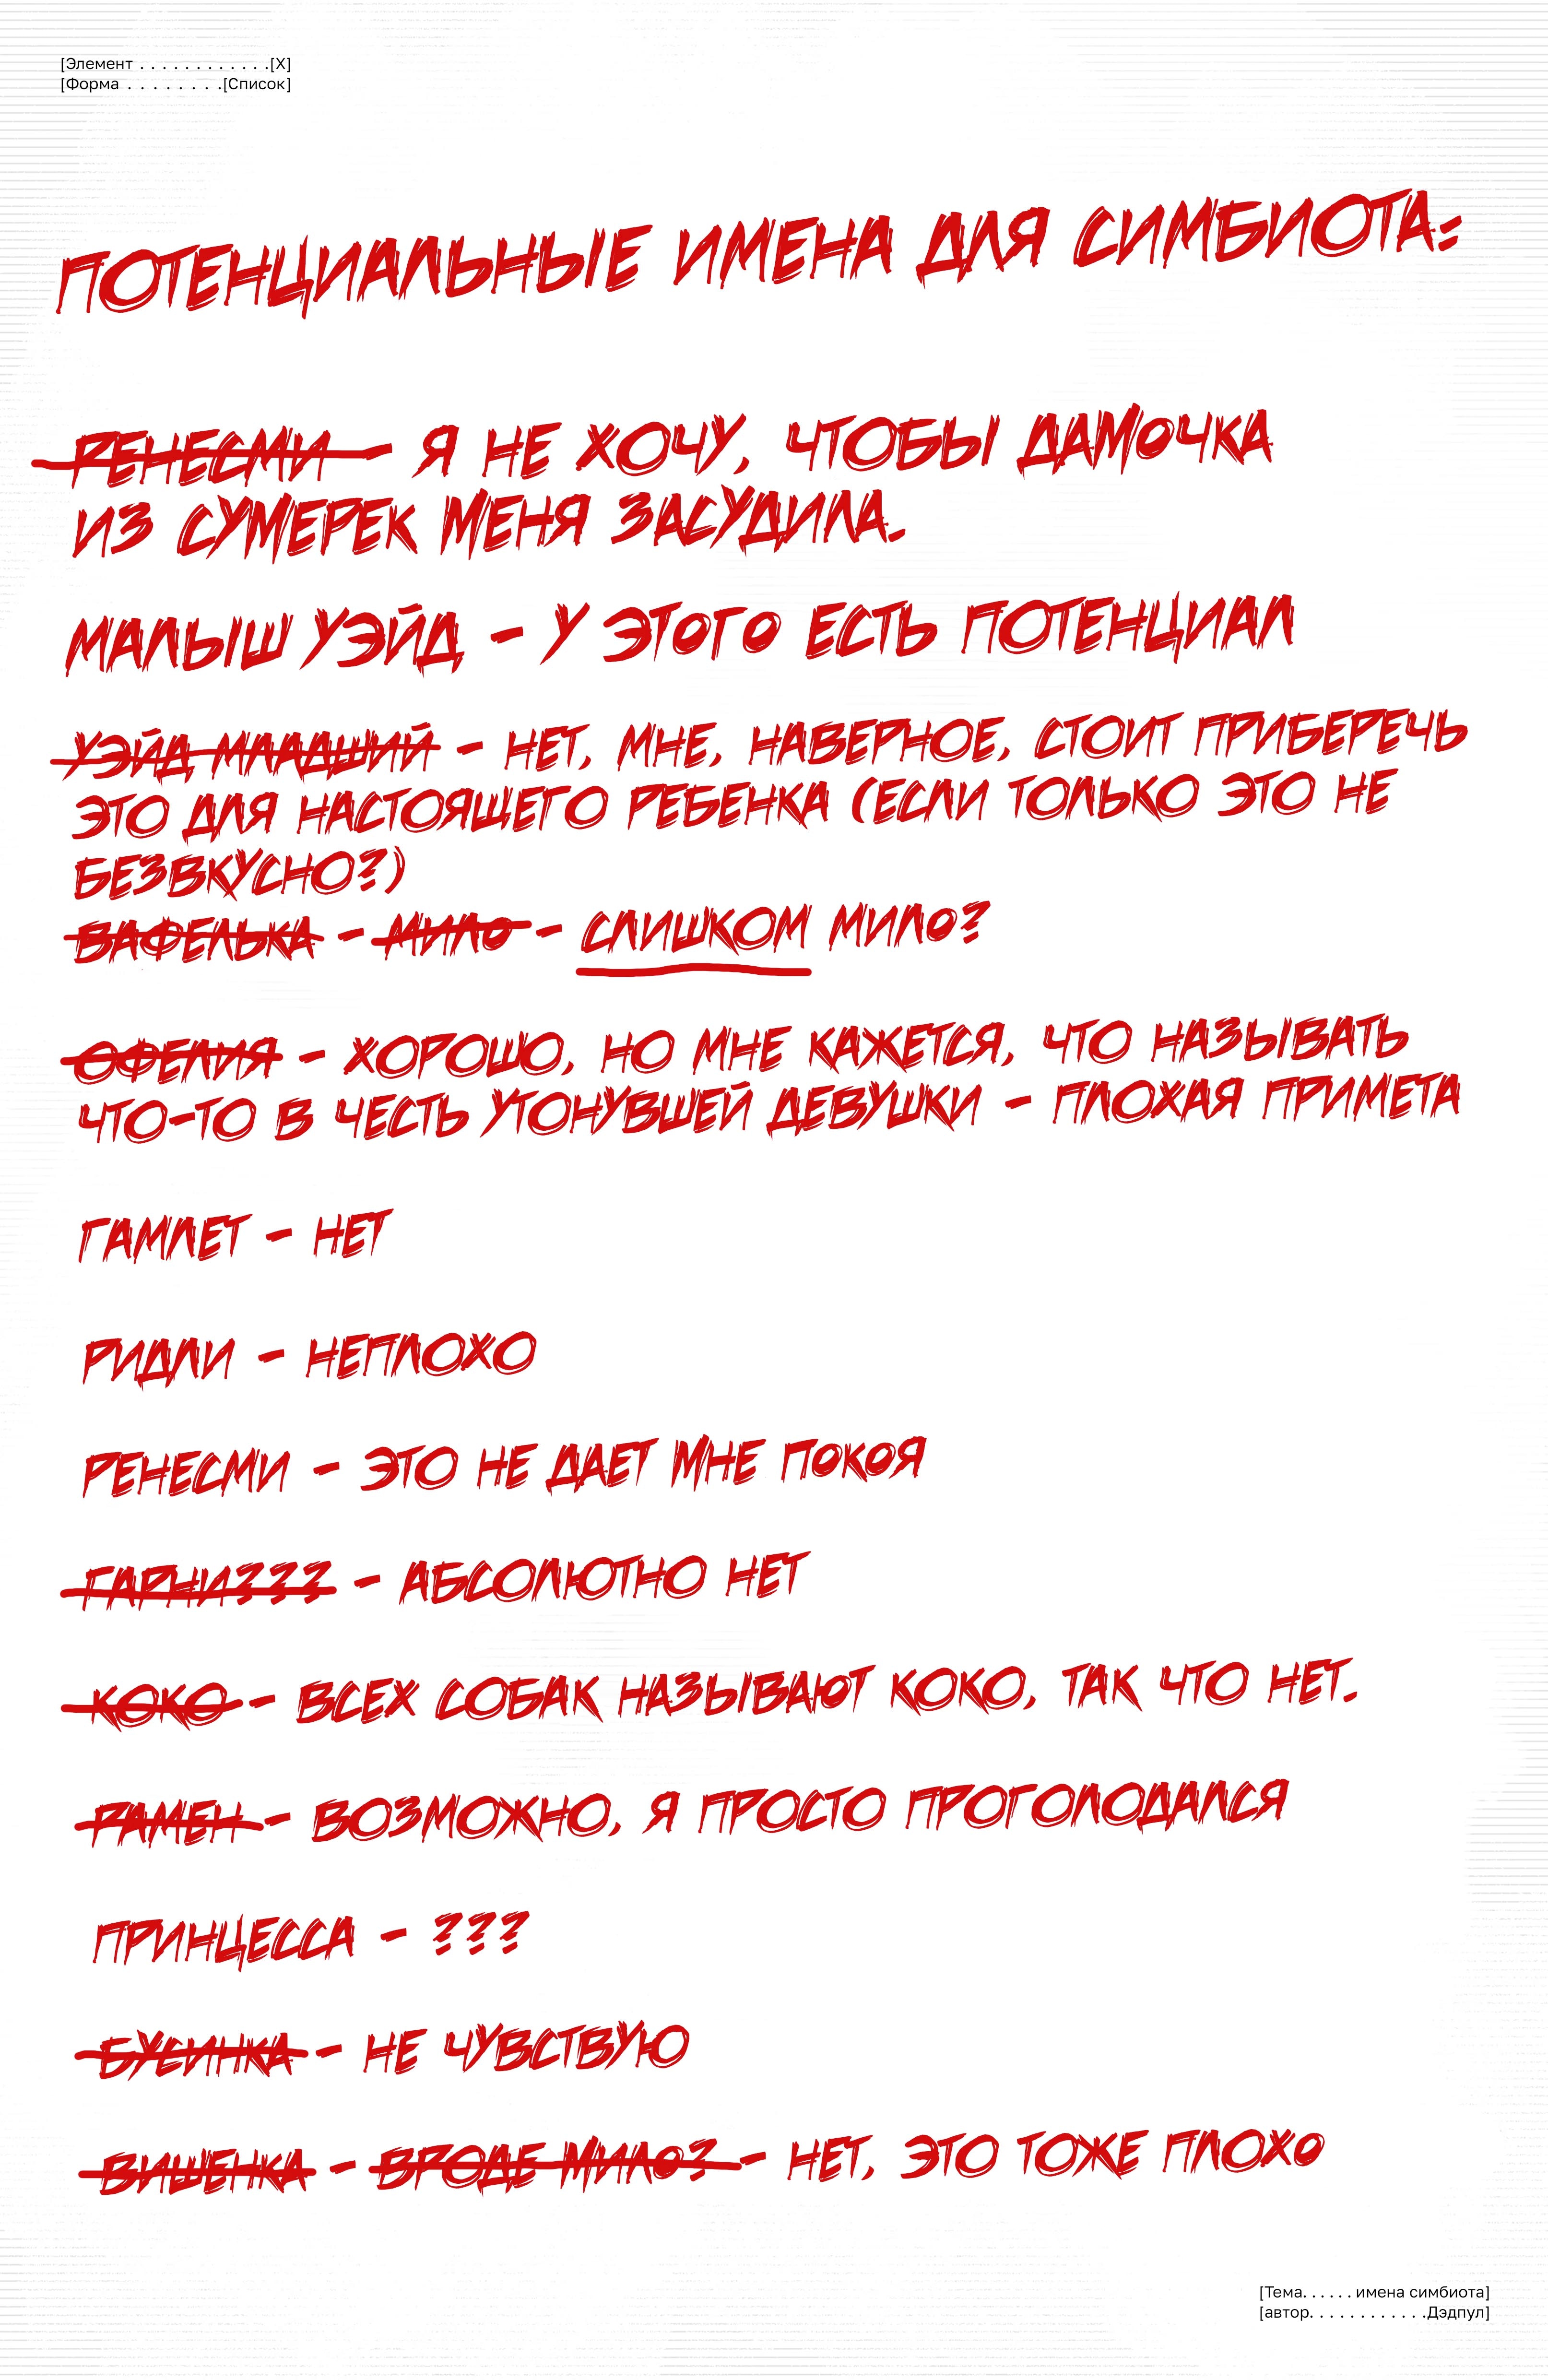 [Элемент . . . . . . . . . . . .[X]
[Форма . . . . . . . .[Список]
ПОТЕНЦИАЛЬНЫЕ ИМЕНА ДЛЯ СИМБИОТА:
РЕНЕСМИ - Я НЕ ХОЧУ, ЧТОБЫ ДАМОЧКА
ИЗ СУМЕРЕК МЕНЯ ЗАСУДИЛА.
МАЛЫШ УЭЙД - У ЭТОГО ЕСТЬ ПОТЕНЦИАЛ
УЭЙД МЛАДШИЙ - НЕТ, МНЕ, НАВЕРНОЕ, СТОИТ ПРИБЕРЕЧЬ
ЭТО ДЛЯ НАСТОЯЩЕГО РЕБЕНКА (ЕСЛИ ТОЛЬКО ЭТО НЕ
БЕЗВКУСНО?)
ВАФЕЛЬКА - МИЛО - СЛИШКОМ МИЛО?
ОФЕЛИЯ - ХОРОШО, НО МНЕ КАЖЕТСЯ, ЧТО НАЗЫВАТЬ
ЧТО-ТО В ЧЕСТЬ УТОНУВШЕЙ ДЕВУШКИ - ПЛОХАЯ ПРИМЕТА
ГАМЛЕТ - НЕТ
РИДЛИ - НЕПЛОХО
РЕНЕСМИ - ЭТО НЕ ДАЕТ МНЕ ПОКОЯ
ГАРНИ??? - АБСОЛЮТНО НЕТ
КОКО - ВСЕХ СОБАК НАЗЫВАЮТ КОКО, ТАК ЧТО НЕТ.
РАМЕН - ВОЗМОЖНО, Я ПРОСТО ПРОГОЛОДАЛСЯ
ПРИНЦЕССА - ???
БУСИНКА - НЕ ЧУВСТВУЮ
ВИШЕНКА - ВРОДЕ МИЛО? - НЕТ, ЭТО ТОЖЕ ПЛОХО
[Тема. . . . . . имена симбиота]
[автор. . . . . . . . . . . .Дэдпул]